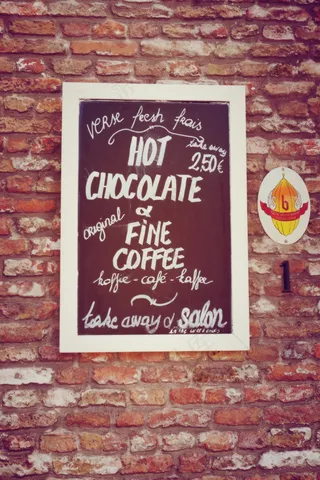 verse fresh frais
HOT
take away
2,50€
CHOCOLATE
original
&
FINE
COFFEE
koffie - café - kaffee
take away & salon
in the weekends
b